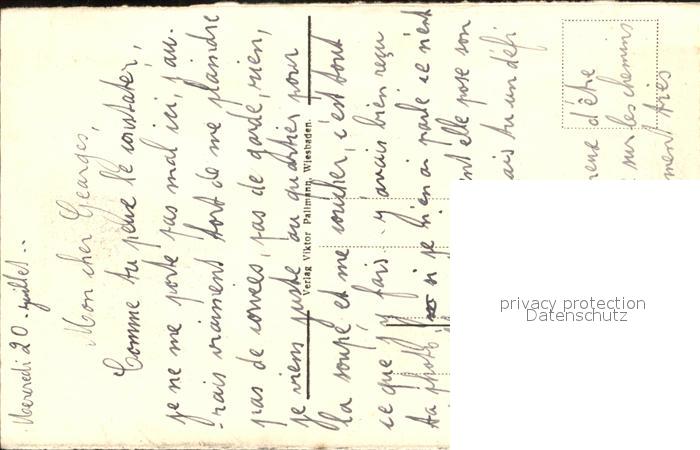 Mercredi 20 juillet..
Mon cher Georges,
Comme tu peux le constater,
je ne me porte pas mal ici, j'au-
rais vraiment tort de me plaindre
pas de corvées, pas de garde, rien,
je viens juste au quartier pour
la soupe et me coucher, c'est tout
ce que j'y fais. J'avais bien reçu
ta photo si je n'en ai parlé ce n'est
ent elle pose son
ais tu un défi
d'être
sur les chemins
ment très
Verlag Viktor Pallmann, Wiesbaden.
privacy protection
Datenschutz